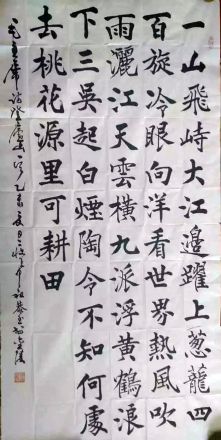 一山飛峙大江邊躍上葱蘢四
百旋冷眼向洋看世界熱風吹
雨灑江天雲橫九派浮黃鶴浪
下三吳起白煙陶令不知何處
去桃花源里可耕田
毛主席詩登廬山